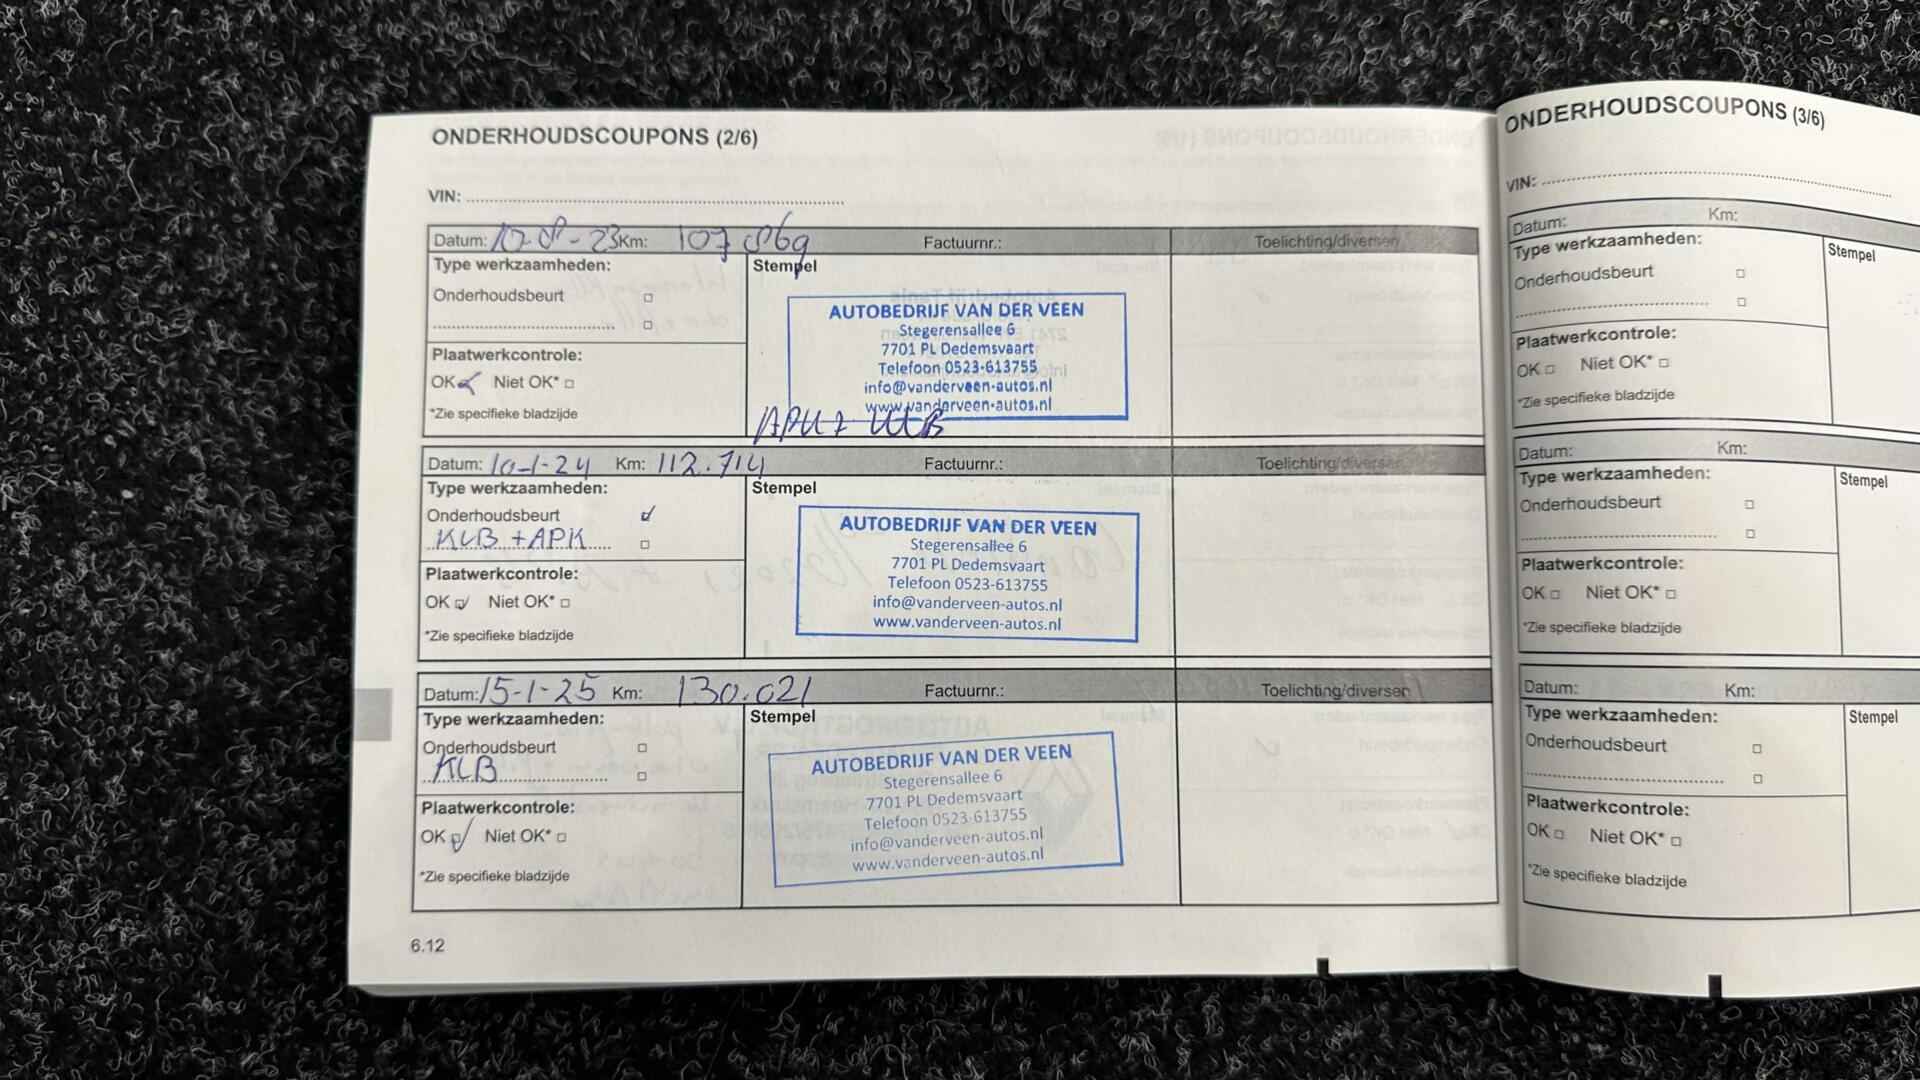 ONDERHOUDSCOUPONS (2/6)
VIN:
Datum: Km: Factuurnr.: Toelichting/diversen
Type werkzaamheden: Stempel
Onderhoudsbeurt
AUTOBEDRIJF VAN DER VEEN
Stegerensallee 6
7701 PL Dedemsvaart
Telefoon 0523-613755
info@vanderveen-autos.nl
www.vanderveen-autos.nl
Plaatwerkcontrole:
OK Niet OK*
*Zie specifieke bladzijde
Datum: 10-1-24 Km: 112.714 Factuurnr.: Toelichting/diversen
Type werkzaamheden: Stempel
Onderhoudsbeurt
KLB + APK
AUTOBEDRIJF VAN DER VEEN
Stegerensallee 6
7701 PL Dedemsvaart
Telefoon 0523-613755
info@vanderveen-autos.nl
www.vanderveen-autos.nl
Plaatwerkcontrole:
OK Niet OK*
*Zie specifieke bladzijde
Datum: 15-1-25 Km: 130.021 Factuurnr.: Toelichting/diversen
Type werkzaamheden: Stempel
Onderhoudsbeurt
KLB
AUTOBEDRIJF VAN DER VEEN
Stegerensallee 6
7701 PL Dedemsvaart
Telefoon 0523-613755
info@vanderveen-autos.nl
www.vanderveen-autos.nl
Plaatwerkcontrole:
OK Niet OK*
*Zie specifieke bladzijde
6.12
ONDERHOUDSCOUPONS (3/6)
VIN:
Datum: Km:
Type werkzaamheden: Stempel
Onderhoudsbeurt
Plaatwerkcontrole:
OK Niet OK*
*Zie specifieke bladzijde
Datum: Km:
Type werkzaamheden: Stempel
Onderhoudsbeurt
Plaatwerkcontrole:
OK Niet OK*
*Zie specifieke bladzijde
Datum: Km:
Type werkzaamheden: Stempel
Onderhoudsbeurt
Plaatwerkcontrole:
OK Niet OK*
*Zie specifieke bladzijde